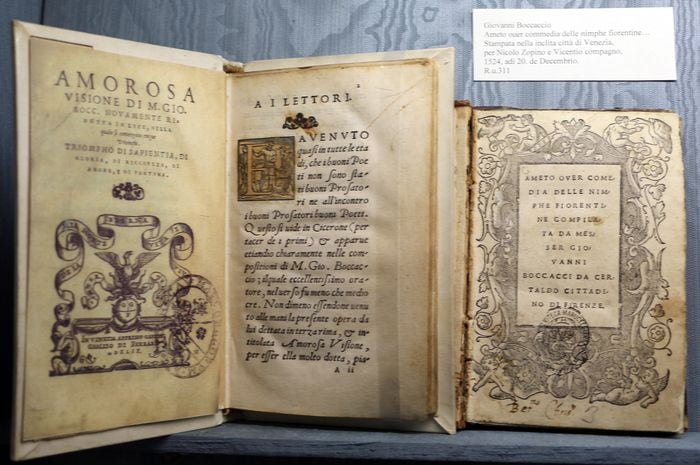 Giovanni Boccaccio
Ameto ouer commedia delle nimphe fiorentine...
Stampata nella inclita città di Venezia,
per Nicolo Zopino e Vicentio compagno,
1524, adi 20. de Decembrio.
R.u.311
AMOROSA
VISIONE DI M. GIO.
BOCC. NOVAMENTE RI-
DOTTA IN LUCE, NELLA
quale si contengono cinque
Triomphi.
TRIOMPHO DI SAPIENTIA, DI
GLORIA, DI RICCHEZZA, DI
AMORE, E DI FORTUNA.
IN VENETIA APPRESSO GABRIEL
GIOLITO DE FERRARI
MDLIX
A I LETTORI.
E AVENUTO
quasi in tutte le eta
di, che i buoni Poe
ti non sono sta-
ti buoni Prosatori
ne all'incontro
i buoni Prosatori buoni Poeti.
Questo si uide in Cicerone (per
tacer de i primi) & apparue
etiandio chiaramente nelle com-
positioni di M. Gio. Boccac-
cio; ilquale eccellentissimo ora-
tore, nel uerso fu meno che medio
cre. Non dimeno essendone uenu-
to alle mani la presente opera da
lui dettata in terza rima, & in-
titolata Amorosa Visione, per
esser ella molto dotta, pia-
A ii
AMETO OVER COME
DIA DELLE NIM
PHE FIORENTI
NE COMPILA
TA DA MES
SER GIO
VANNI
BOCCACCI DA CER
TALDO CITTADI
NO DI FIRENZE.